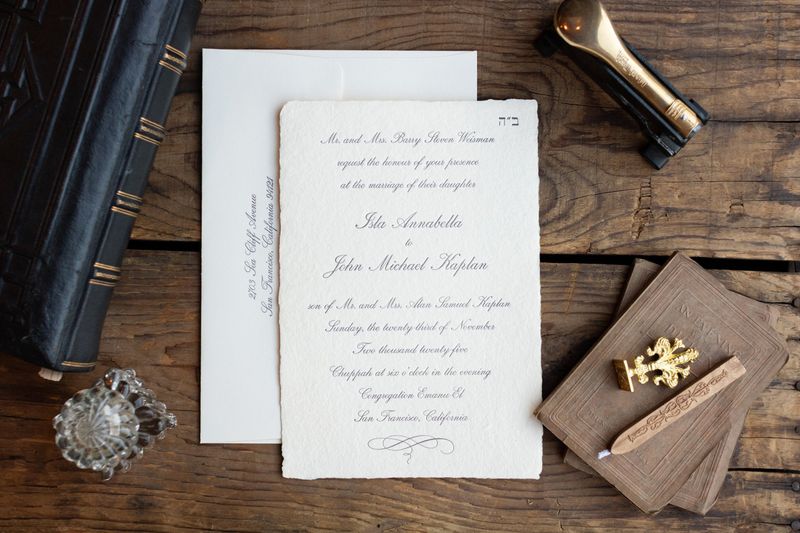 ב״ה
Mr. and Mrs. Barry Steven Weisman
request the honour of your presence
at the marriage of their daughter
Isla Annabella
to
John Michael Kaplan
son of Mr. and Mrs. Alan Samuel Kaplan
Sunday, the twenty-third of November
Two thousand twenty-five
Chuppah at six o'clock in the evening
Congregation Emanu-El
San Francisco, California
2703 Sea Cliff Avenue
San Francisco, California 94121